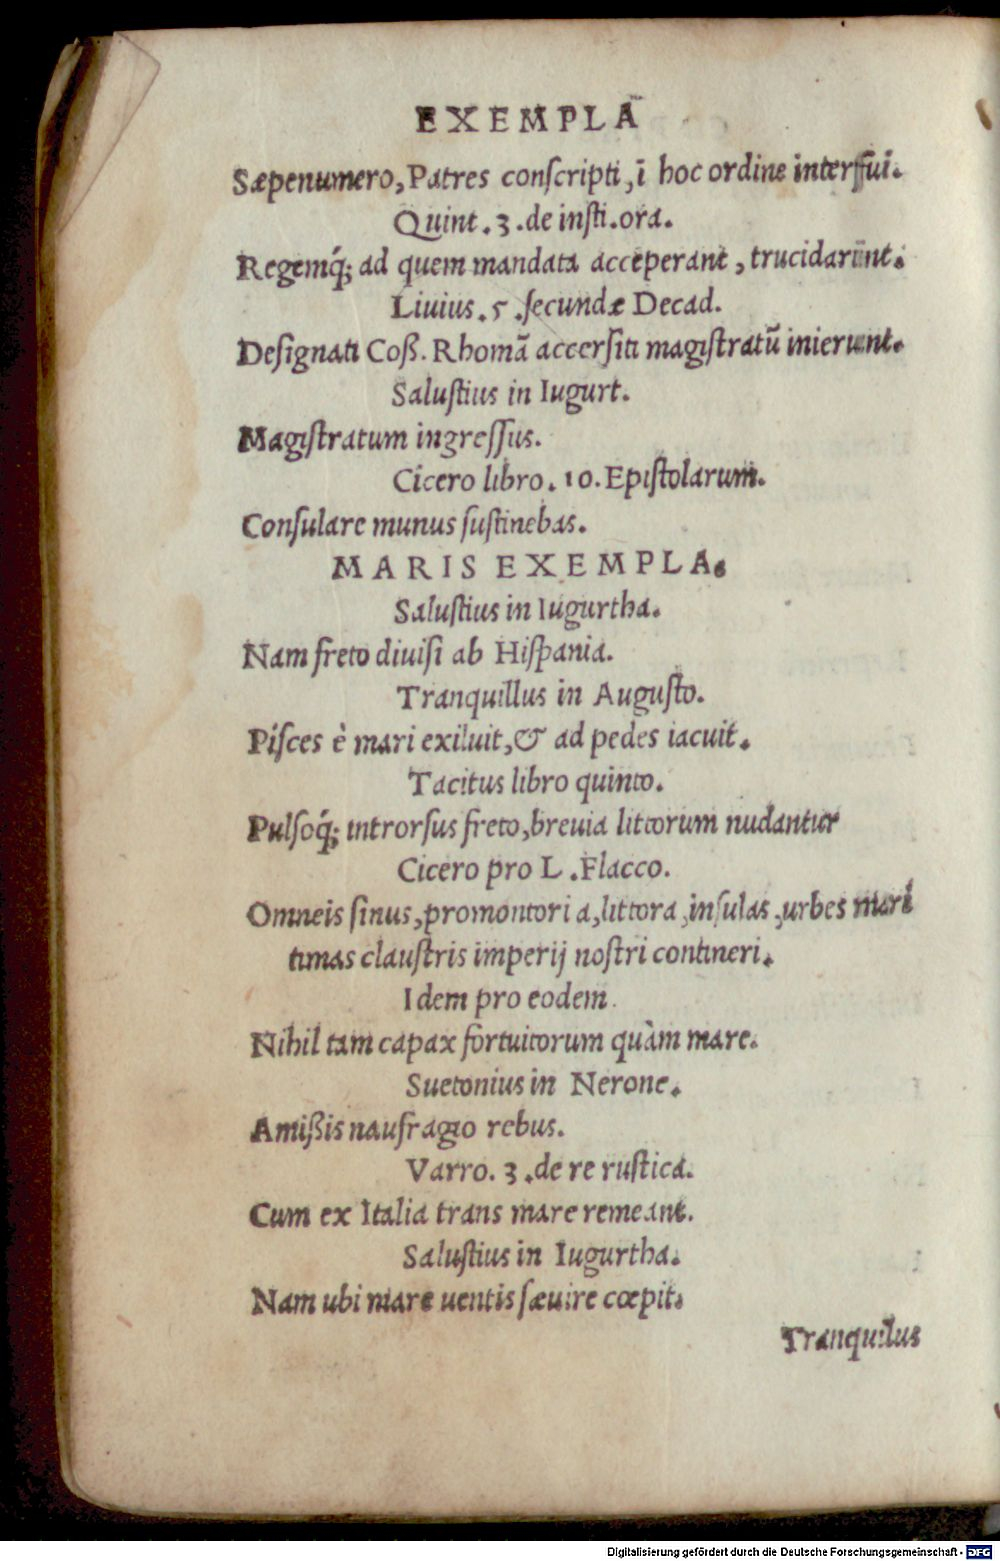 EXEMPLA
Sæpenumero, Patres conscripti, ī hoc ordine interfui.
Quint. 3. de insti. ora.
Regemq́; ad quem mandata acceperant, trucidarūnt.
Liuius. 5. secundæ Decad.
Designati Coß. Rhomā accersiti magistratū inierunt.
Salustius in Iugurt.
Magistratum ingressus.
Cicero libro. 10. Epistolarum.
Consulare munus sustinebas.
MARIS EXEMPLA.
Salustius in Iugurtha.
Nam freto diuisi ab Hispania.
Tranquillus in Augusto.
Pisces è mari exiluit, & ad pedes iacuit.
Tacitus libro quinto.
Pulsoq́; introrsus freto, breuia littorum nudantur
Cicero pro L. Flacco.
Omneis sinus, promontoria, littora, insulas, urbes mari
timas claustris imperij nostri contineri.
Idem pro eodem.
Nihil tam capax fortuitorum quàm mare.
Suetonius in Nerone.
Amißis naufragio rebus.
Varro. 3. de re rustica.
Cum ex Italia trans mare remeant.
Salustius in Iugurtha.
Nam ubi mare uentis sæuire cœpit.
Tranquilus
Digitalisierung gefördert durch die Deutsche Forschungsgemeinschaft - DFG